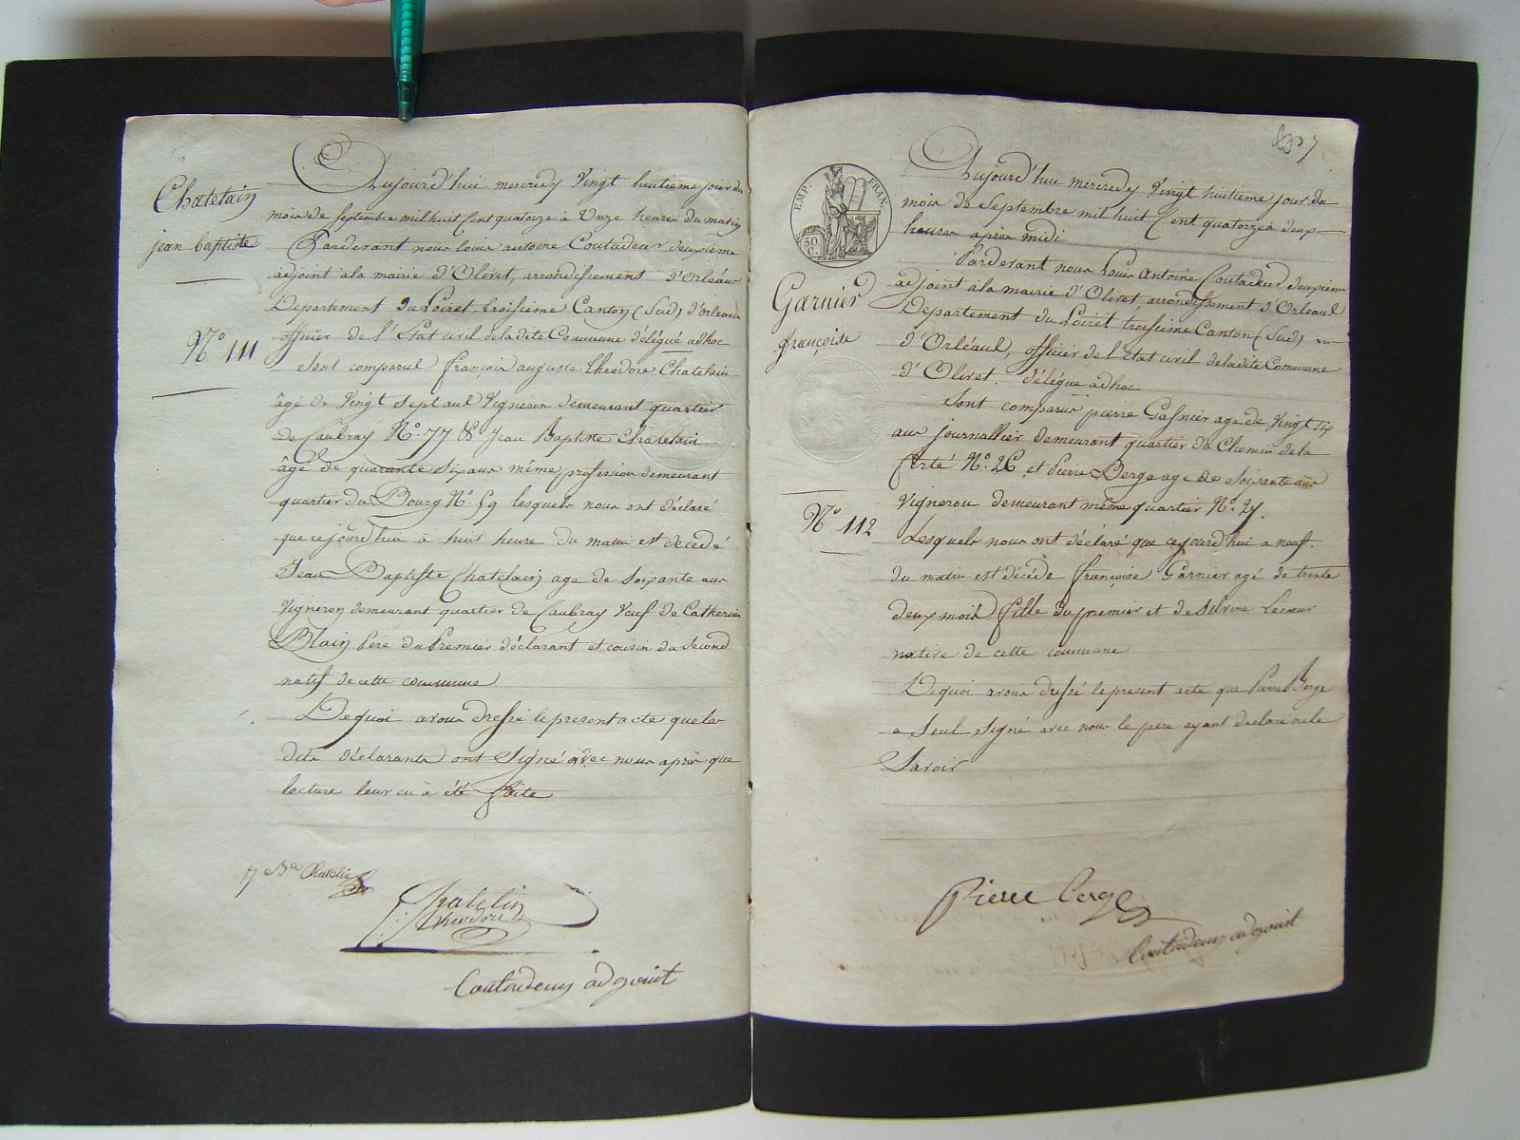 Chatelain
jean baptiste
N.o 111
Aujourd'hui mercredy Vingt huitieme jour du
mois de Septembre mil huit Cent quatorze à Onze heures du matin
Pardevant nous Louis antoine Coutadeur deuxième
adjoint à la mairie d'Olivet, arrondissement d'Orléans
Departement du Loiret, troisieme Canton (Sud) d'orleans
officier de l'Etat civil de ladite Commune délégué adhoc
Sont comparus françois auguste theodore Chatelain
âgé de Vingt Sept ans Vigneron demeurant quartier
de Caubray N.o 77 & Jean Baptiste Chatelain
âgé de quarante Six ans même profession demeurant
quartier du Bourg N.o 59 lesquels nous ont déclaré
que cejourd'hui à huit heure du matin est decedé
Jean Baptiste Chatelain age de Soixante ans
Vigneron demeurant quartier de Caubray Veuf de Catherine
Blain Pere du Premier déclarant et cousin du Second
natif de cette commune
De quoi avons dressé le present acte que les
dits déclarants ont Signé avec nous après que
lecture leur en à été faite
Chatelin
theodore
Coutadeur adjouint
EMP. FRAN.
50
C.
Garnier
françoise
N.o 112
Aujourd'hui mercredy Vingt huitieme jour du
mois de Septembre mil huit Cent quatorze à deux
heures après midi
Pardevant nous Louis Antoine Coutadeur deuxième
adjoint à la mairie d'Olivet arrondissement d'Orleans
Departement du Loiret troisieme Canton (Sud)
d'Orléans, officier de l'état civil de ladite Commune
d'Olivet. délégué adhoc
Sont comparus pierre Garnier age de Vingt Six
ans journallier demeurant quartier du Chemin de la
ferté N.o 26 et Pierre Berge age de Soixante ans
Vigneron demeurant même quartier N.o 27.
Lesquels nous ont déclaré que cejourd'hui a neuf
du matin est décédé françoise Garnier agé de trente
deux mois fille du premier et de Silvine Lecoeur
native de cette commune
De quoi avons dressé le present acte que Pierre Berge
a Seul Signé avec nous le pere ayant declaré ne le
Savoir
Pierre berge
Coutadeur adjouint